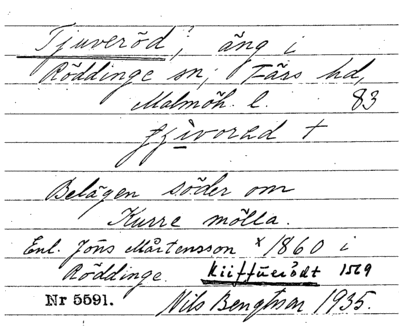 Tjuveröd?, äng i
Röddinge sn, Färs hd,
Malmöh. l. 83
Belägen söder om
Kurre mölla.
Enl. Jöns Mårtensson * 1860 i
Röddinge. 1569
Nr 5591. Nils Bengtsson 1935.